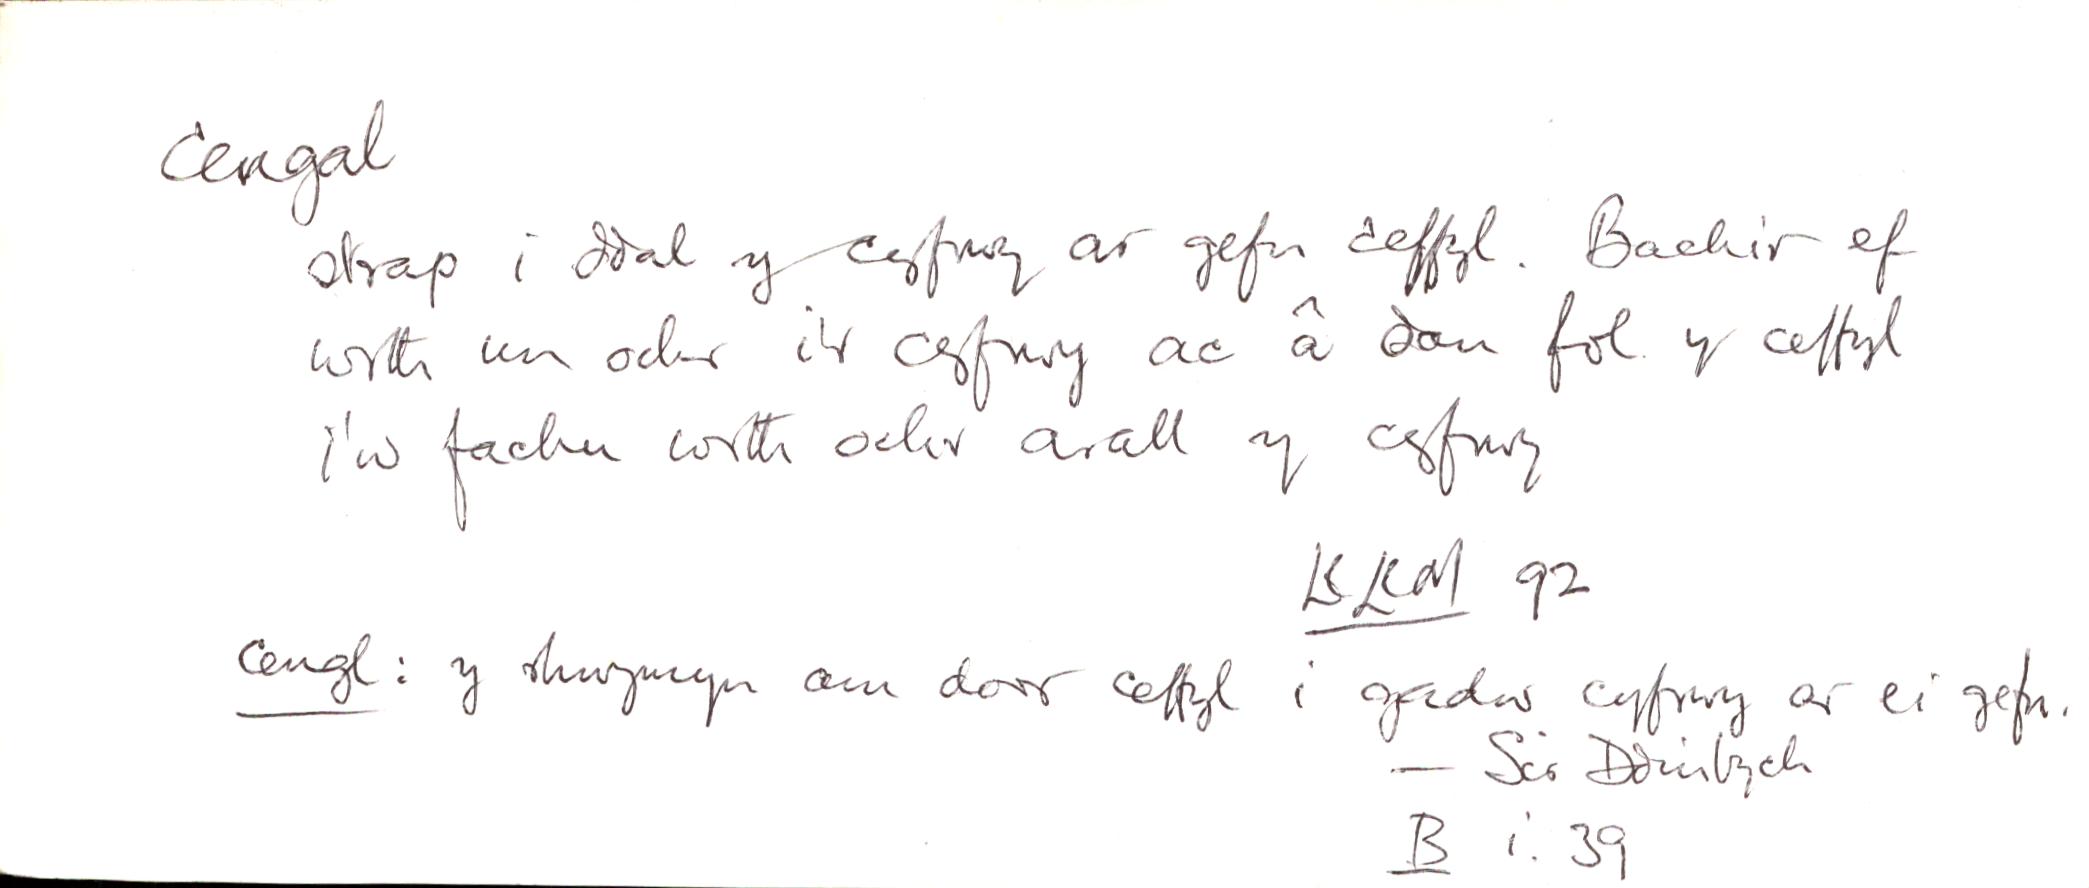 Cengal
strap i ddal y cyfrwy ar gefn ceffyl. Bachir ef
wrth un ochr i'r cyfrwy ac â dan fol y ceffyl
i'w fachu wrth ochr arall y cyfrwy
92
Cengl: y rhwymyn am dorr ceffyl i gadw cyfrwy ar ei gefn.
— Sir Ddinbych
B i. 39